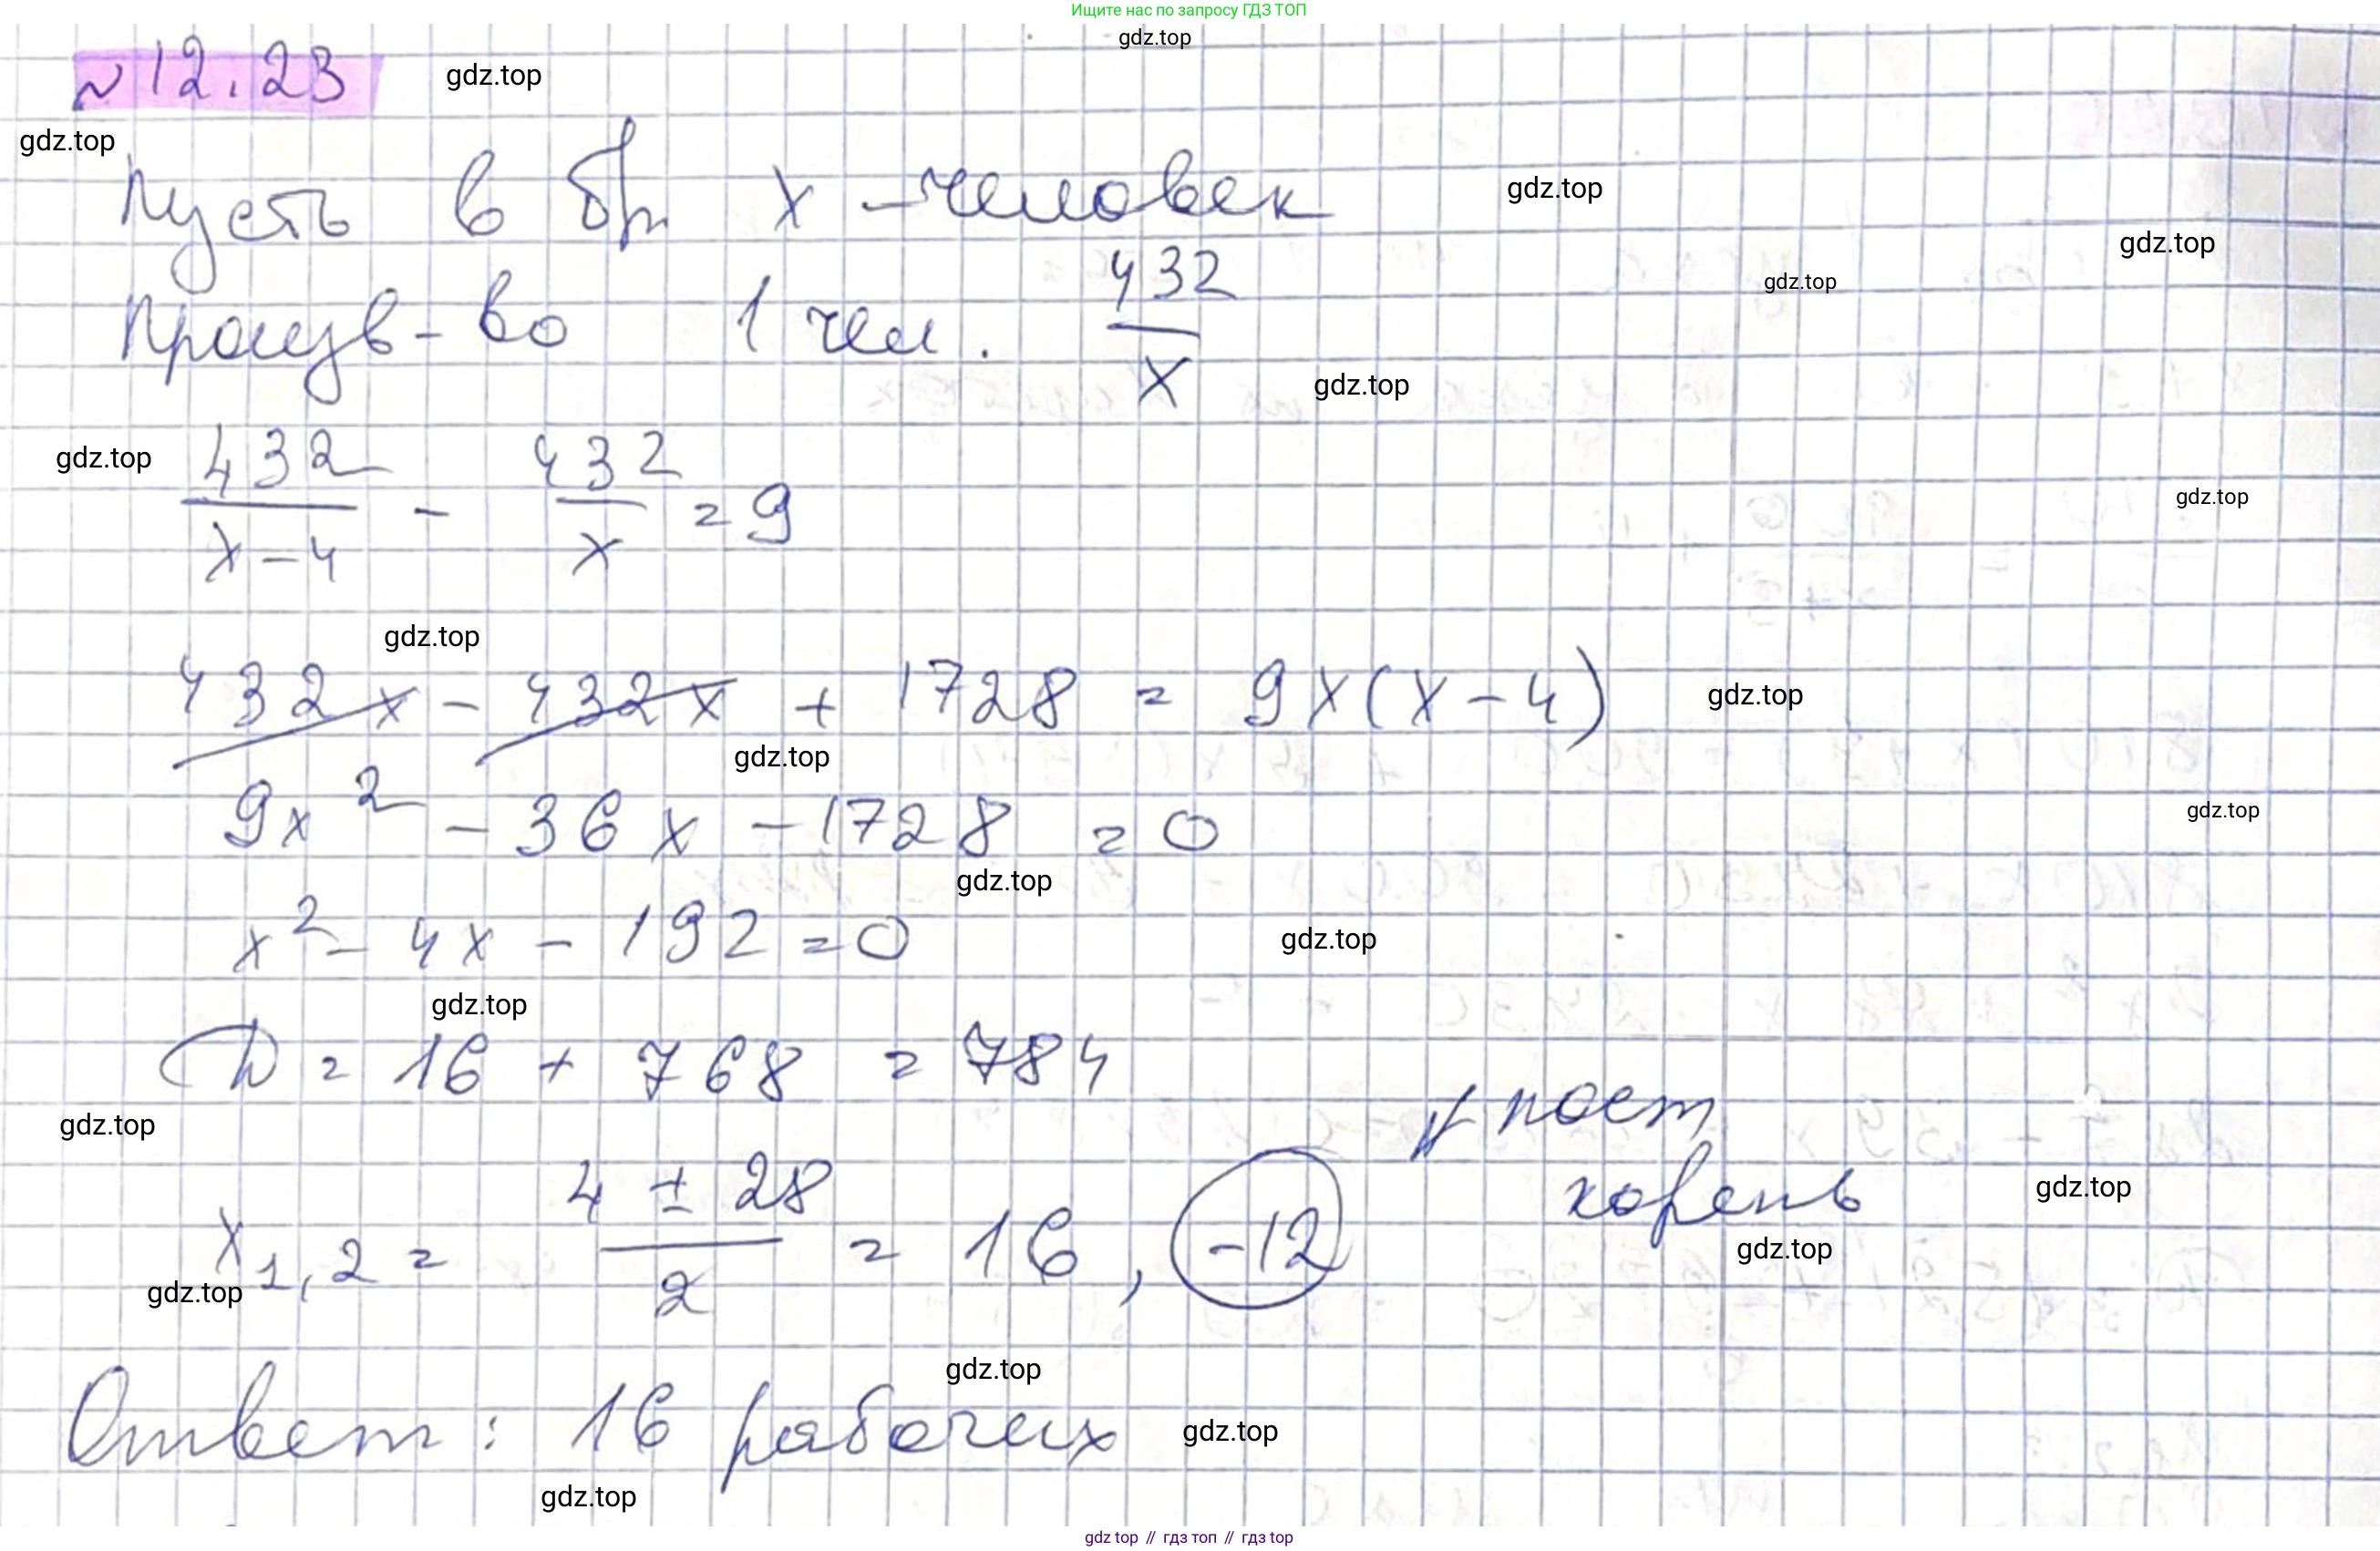 Ищите нас по запросу ГДЗ ТОП
gdz.top
№12.23
gdz.top
gdz.top
Пусть в бр x - человек
gdz.top
gdz.top
gdz.top
Произв-во 1 чел. 432/x
gdz.top
gdz.top
432/(x-4) - 432/x = 9
gdz.top
gdz.top
432x - 432x + 1728 = 9x(x-4)
gdz.top
gdz.top
9x² - 36x - 1728 = 0
gdz.top
gdz.top
x² - 4x - 192 = 0
gdz.top
gdz.top
D = 16 + 768 = 784
gdz.top
пост
корень
gdz.top
gdz.top
x1,2 = (4 ± 28)/2 = 16, -12
gdz.top
gdz.top
Ответ: 16 рабочих
gdz.top
gdz.top
gdz top // гдз топ // гдз top